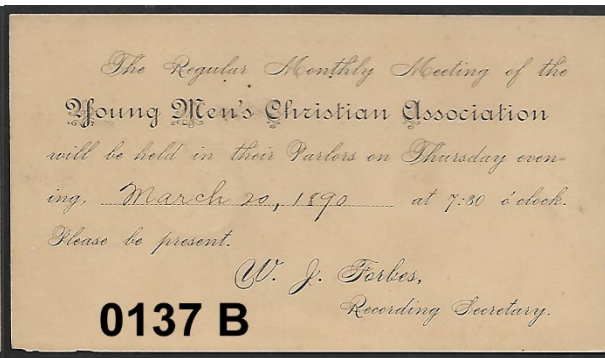 The Regular Monthly Meeting of the
Young Men's Christian Association
will be held in their Parlors on Thursday even-
ing, March 20, 1890 at 7:30 o'clock.
Please be present.
W. J. Forbes,
Recording Secretary.
0137 B